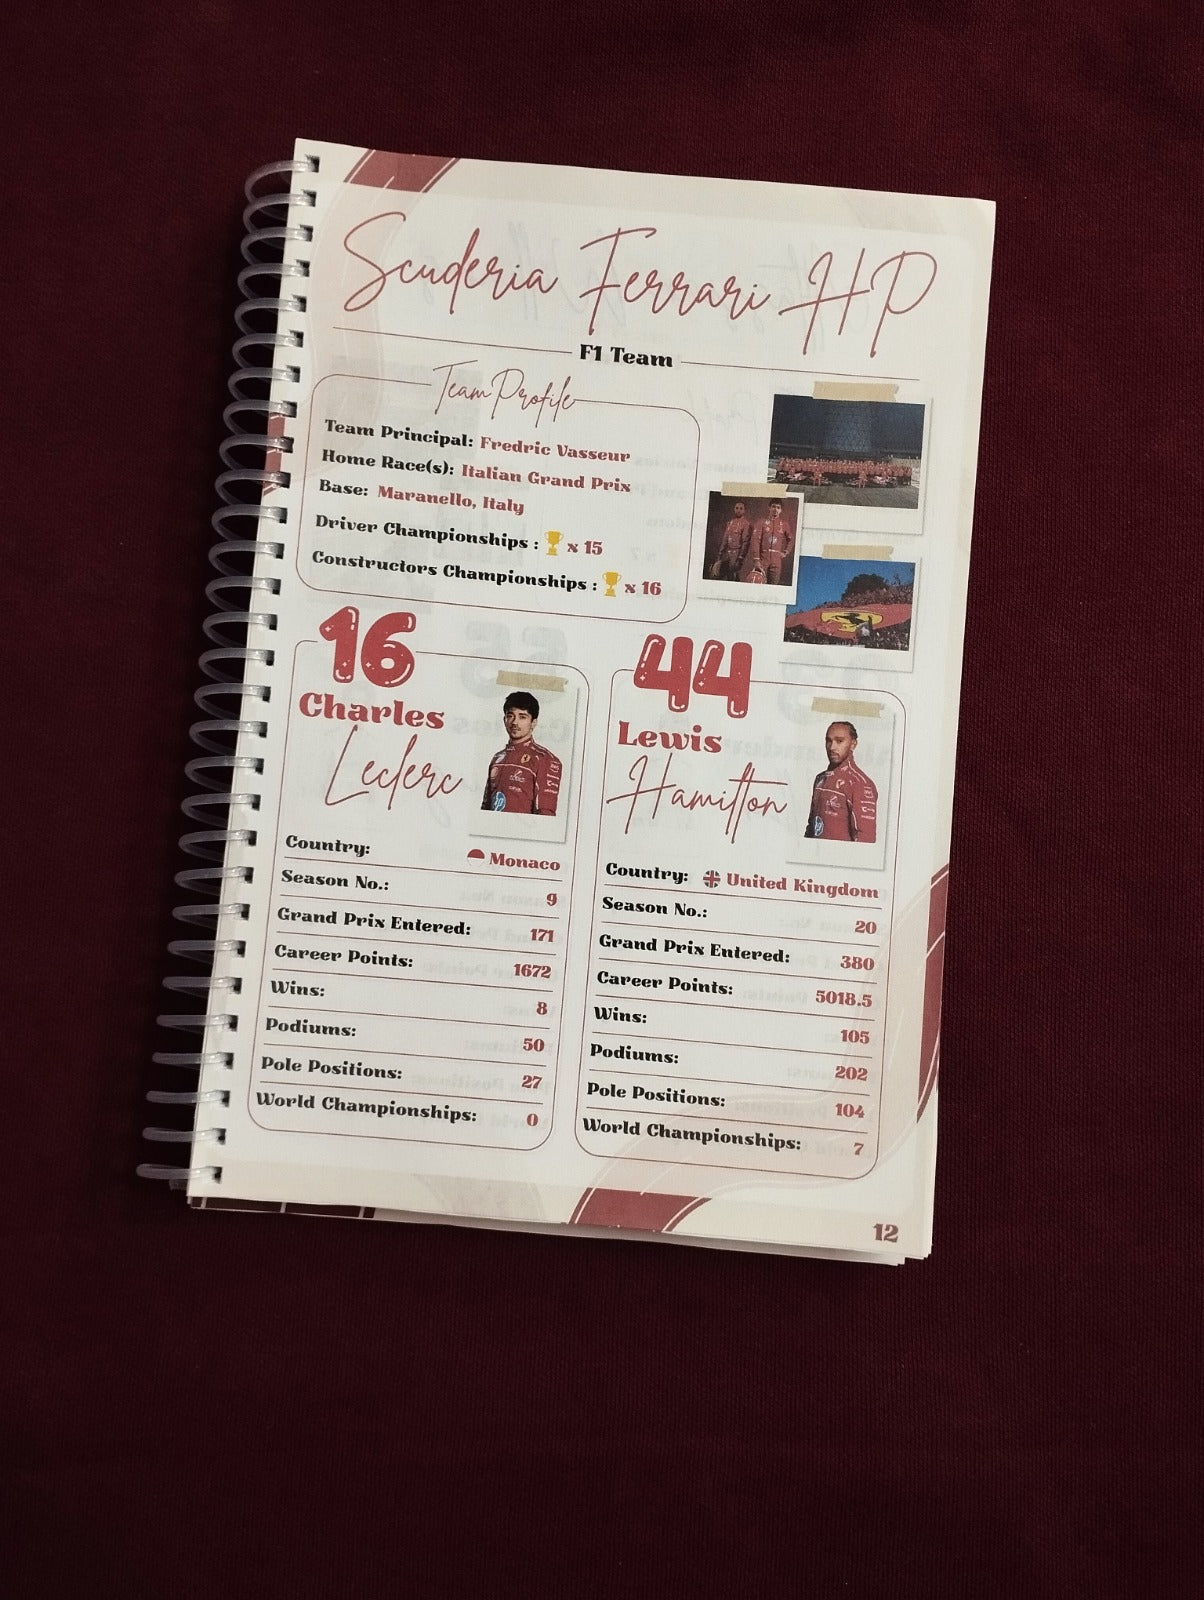 Scuderia Ferrari HP
F1 Team
Team Profile
Team Principal: Fredric Vasseur
Home Race(s): Italian Grand Prix
Base: Maranello, Italy
Driver Championships : x 15
Constructors Championships : x 16
16
Charles
Leclerc
Country: Monaco
Season No.: 9
Grand Prix Entered: 171
Career Points: 1672
Wins: 8
Podiums: 50
Pole Positions: 27
World Championships: 0
44
Lewis
Hamilton
Country: United Kingdom
Season No.: 20
Grand Prix Entered: 380
Career Points: 5018.5
Wins: 105
Podiums: 202
Pole Positions: 104
World Championships: 7
12